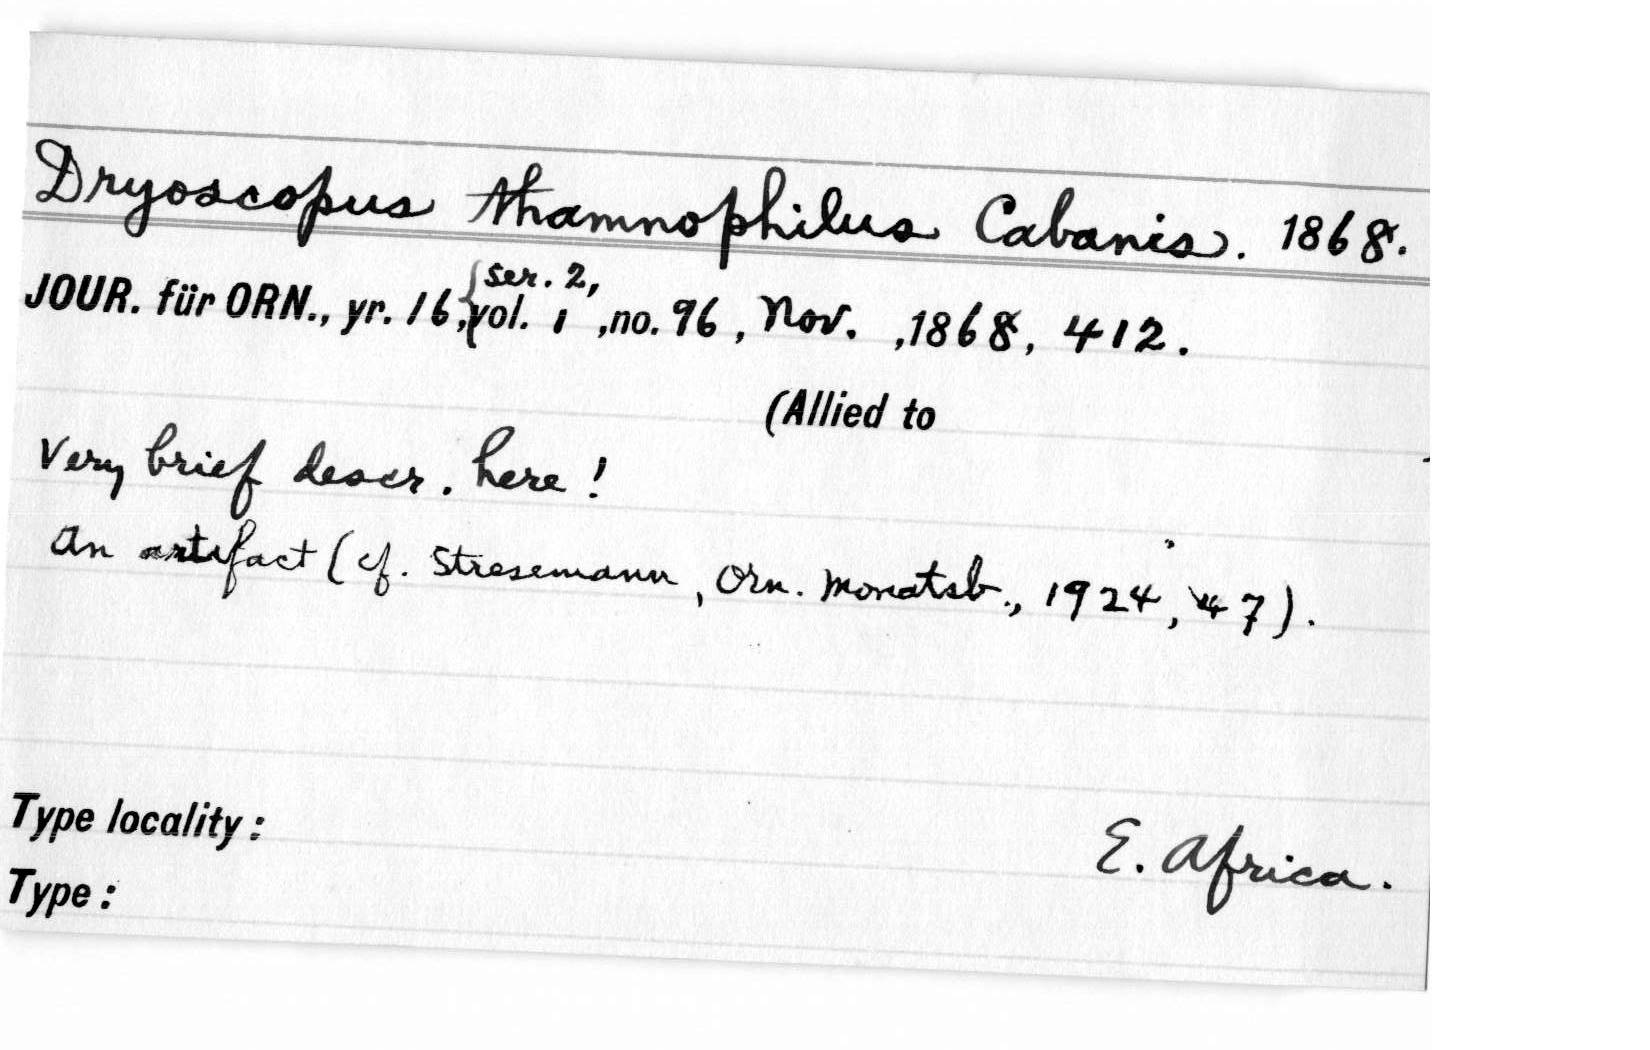 Dryoscopus thamnophilus Cabanis. 1868.
ser. 2,
JOUR. für ORN., yr. 16, vol. 1, no. 96, Nov., 1868, 412.
(Allied to
Very brief descr. here!
An artifact (cf. Stresemann, Orn. Monatsb., 1924, 47).
Type locality: E. Africa.
Type: